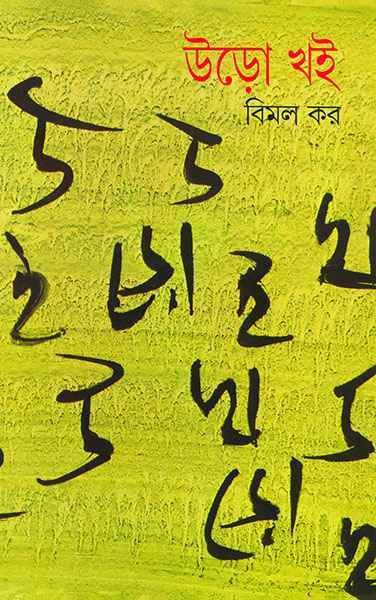 উড়ো খই
বিমল কর
উ উ
ই ড়ো ই খ
উ উ খ উ
ড়ো খ